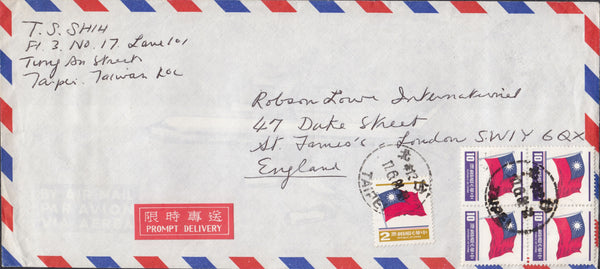 T.S. SHIH
Fl. 3. No. 17. Lane 101
Tung An Street
Taipei, Taiwan ROC
Robson Lowe International
47 Duke Street
St. James's London SW1Y 6QX
England
限時專送
PROMPT DELIVERY
TAIPEI
2
中華民國郵票
10
10
10
10